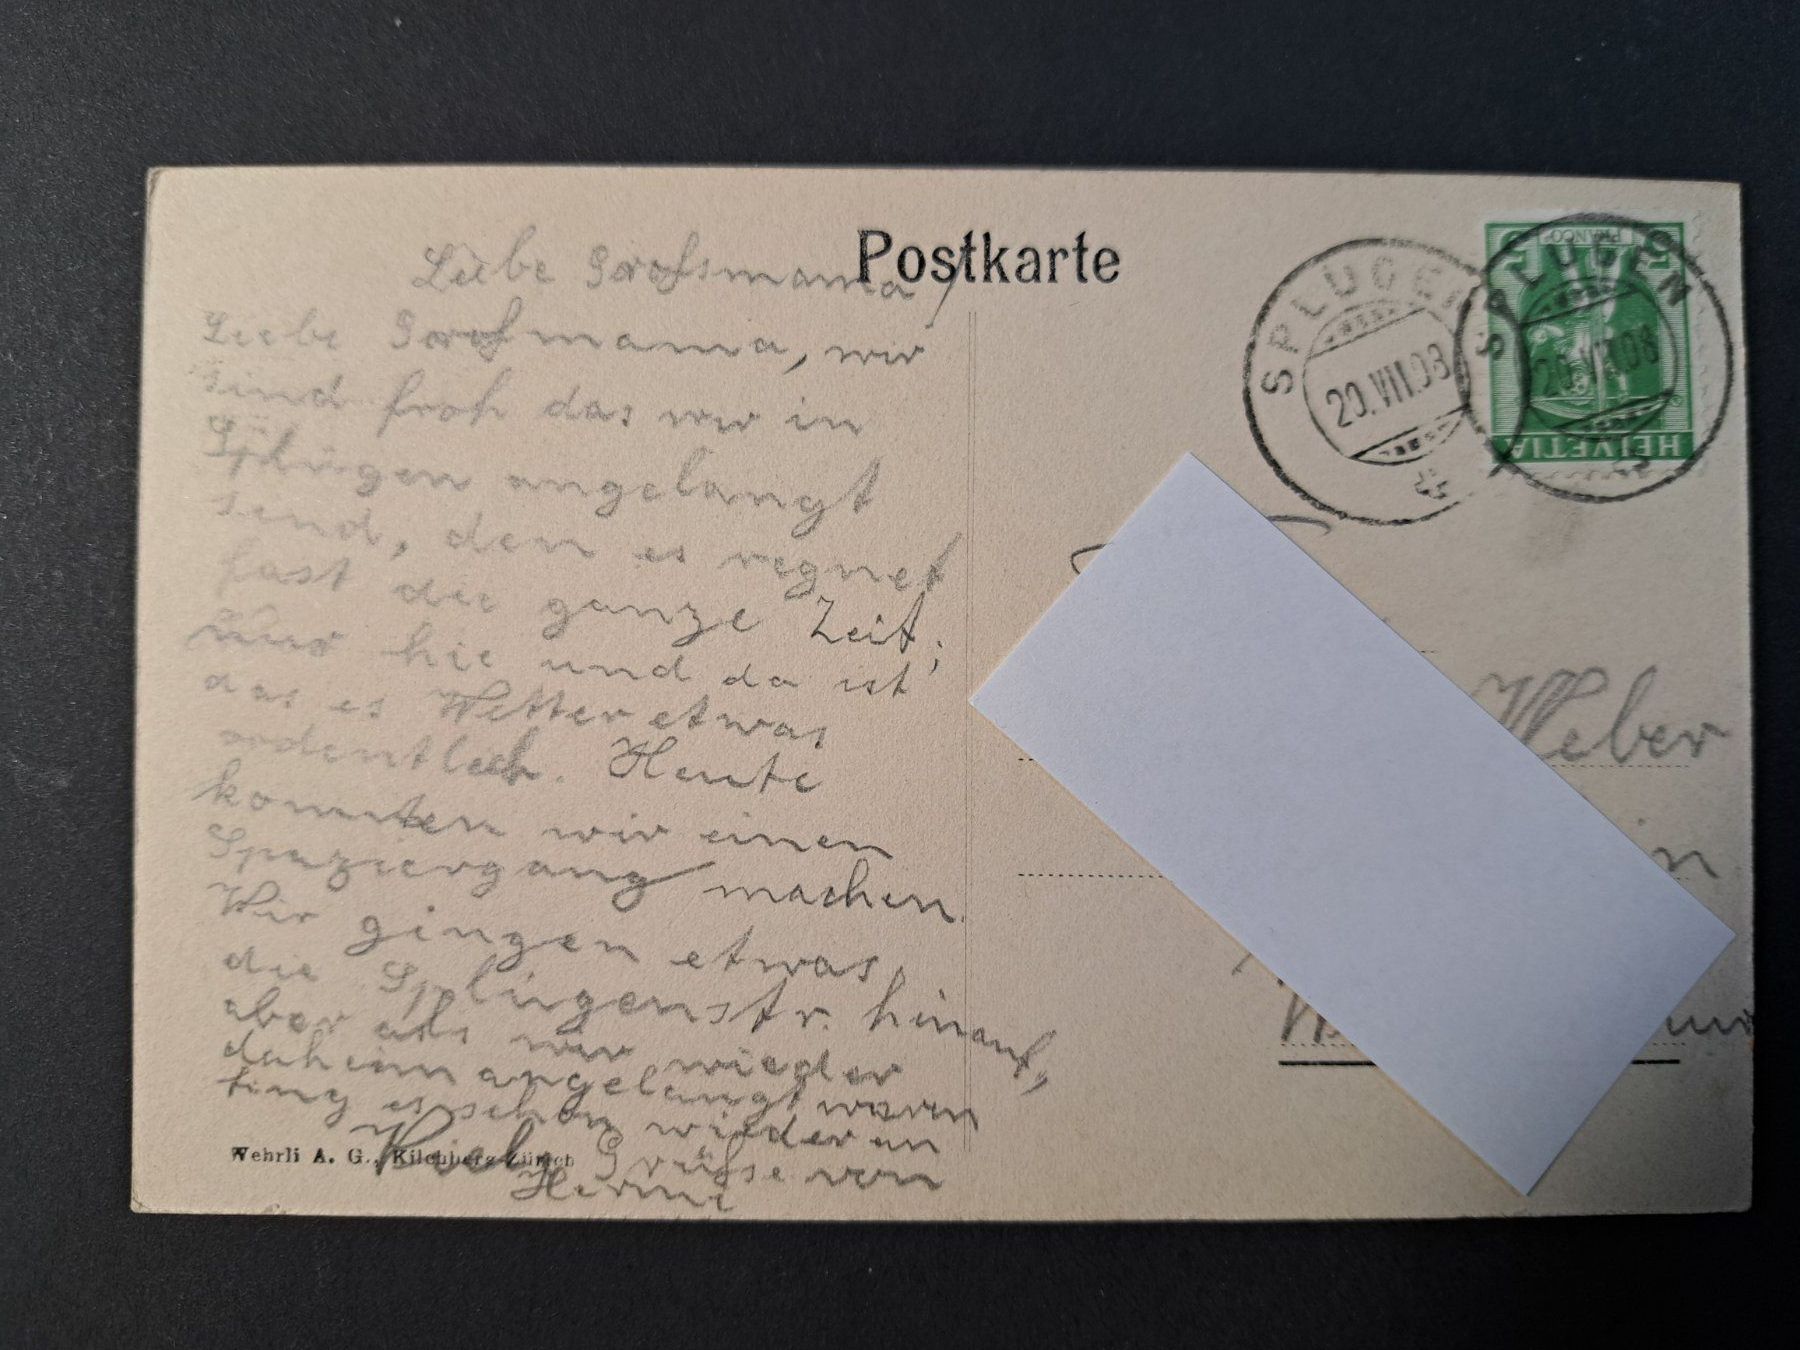 Postkarte
Liebe Grossmama!
Liebe Grossmama, wir
sind froh das wir in
Splügen angelangt
send, den es regnet
fast die ganze Zeit;
nur hie und da ist
das es Wetter etwas
ordentlich. Heute
konnten wir einen
Spaziergang machen.
Wir gingen etwas
die Splügenstr. hinauf,
aber als wir wieder
daheim angelangt waren
fing es schon wieder an
Viele Grüsse von
Hermi
Wehrli A. G., Kilchberg-Zürich
SPLÜGEN
20.VII.08
SPLÜGEN
20.VII.08
5 FRANCO 5
HELVETIA
Weber